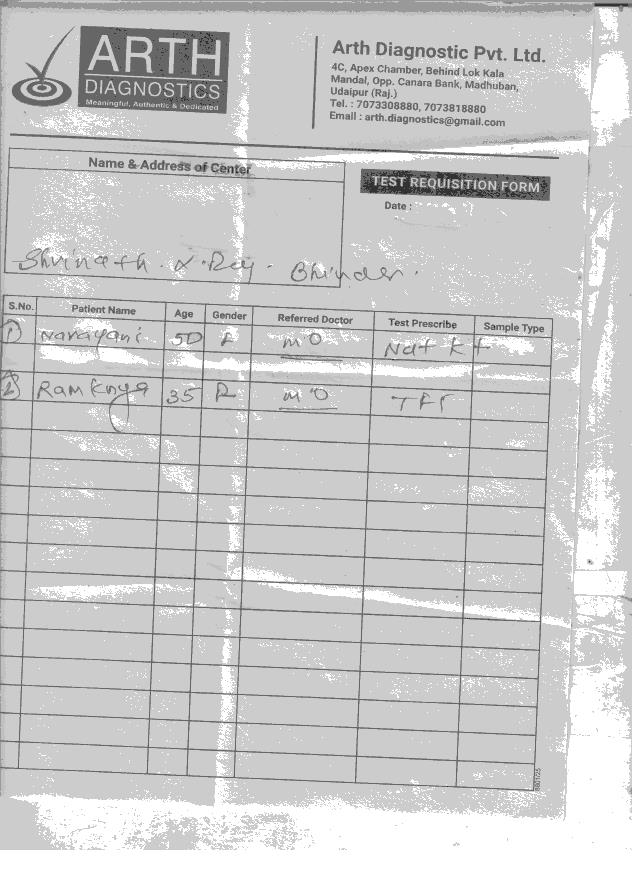 ARTH
DIAGNOSTICS
Meaningful, Authentic & Dedicated
Arth Diagnostic Pvt. Ltd.
4C, Apex Chamber, Behind Lok Kala
Mandal, Opp. Canara Bank, Madhuban,
Udaipur (Raj.)
Tel. : 7073308880, 7073818880
Email : arth.diagnostics@gmail.com
Name & Address of Center
TEST REQUISITION FORM
Date :
Shrinath X-Ray. Bhinder.
S.No. Patient Name Age Gender Referred Doctor Test Prescribe Sample Type
1 Narayani 50 MO Na+ K+
2 Ramknya 35 MO